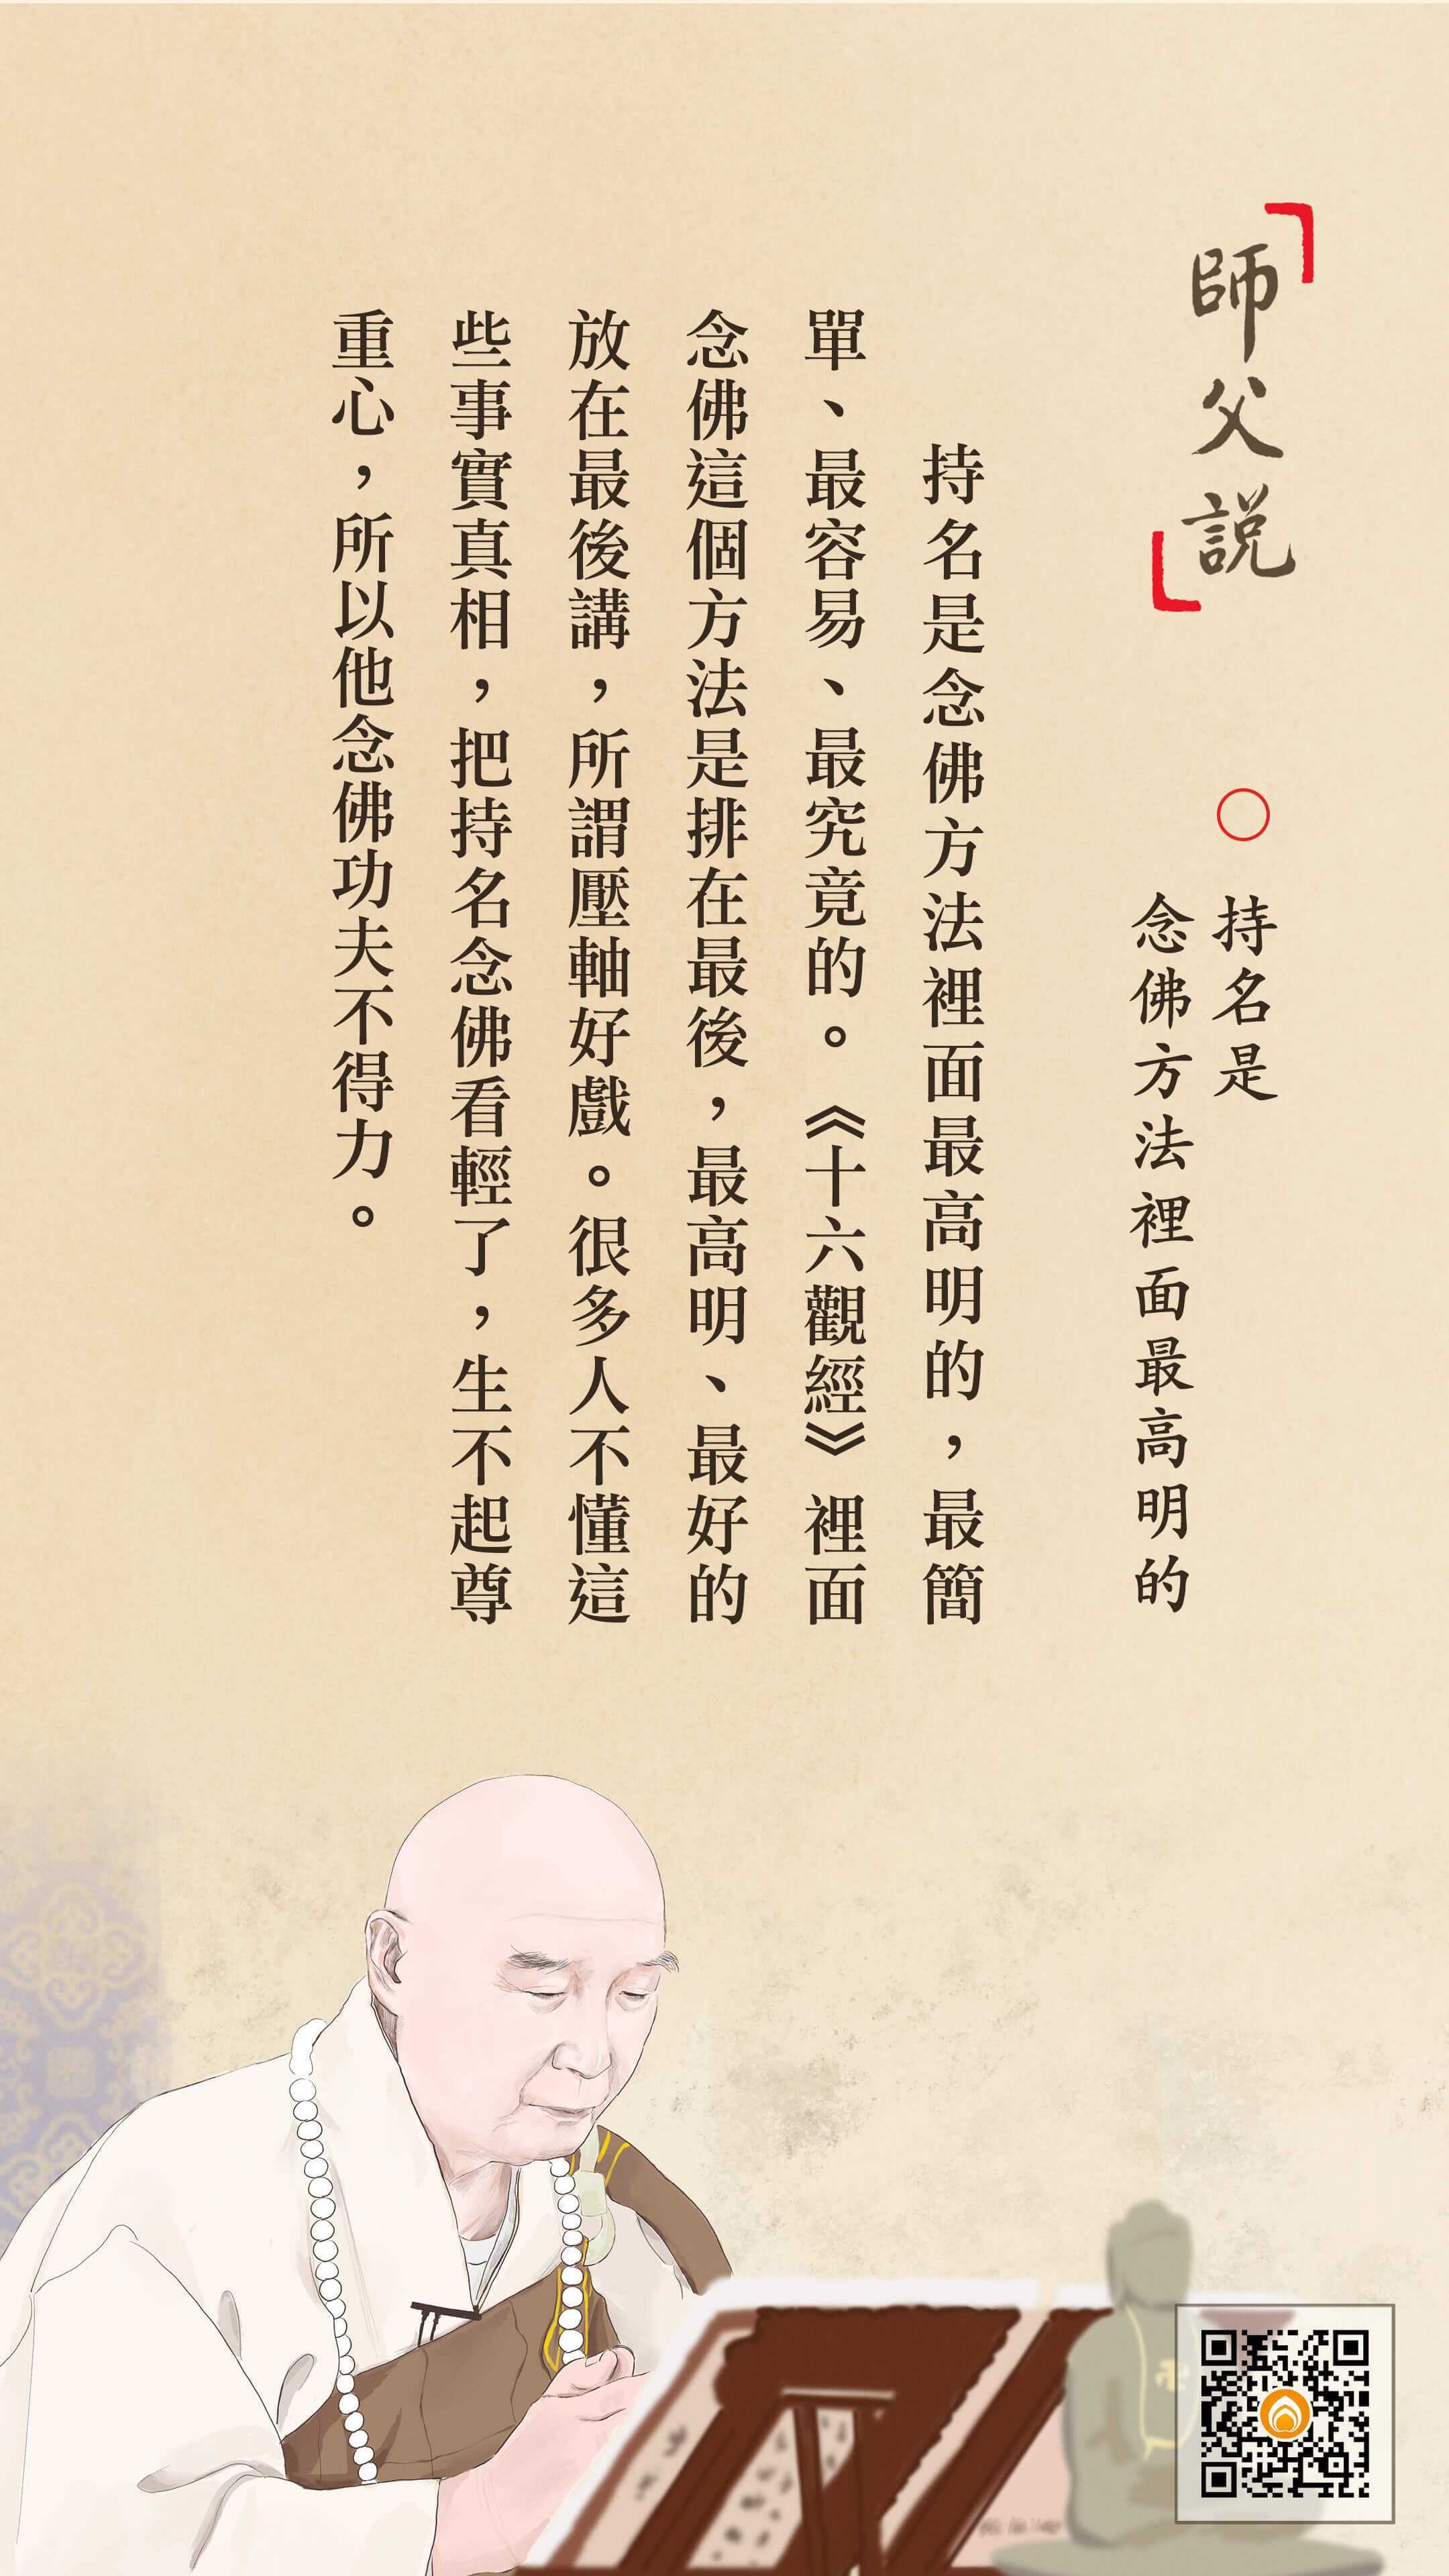 師父説
持名是
念佛方法裡面最高明的
持名是念佛方法裡面最高明的，最簡
單、最容易、最究竟的。《十六觀經》裡面
念佛這個方法是排在最後，最高明、最好的
放在最後講，所謂壓軸好戲。很多人不懂這
些事實真相，把持名念佛看輕了，生不起尊
重心，所以他念佛功夫不得力。